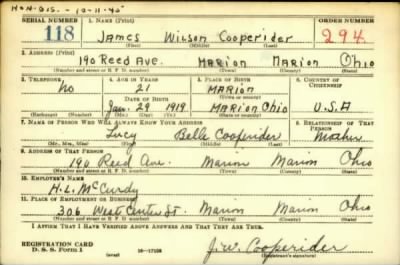 HON. DIS. - 10-11-45
SERIAL NUMBER 1. NAME (Print) ORDER NUMBER
118 James Wilson Cooperider 294
(First) (Middle) (Last)
2. ADDRESS (Print)
190 Reed Ave. MARION MARION Ohio
(Number and street or R. F. D. number) (Town) (County) (State)
3. TELEPHONE 4. AGE IN YEARS 5. PLACE OF BIRTH 6. COUNTRY OF CITIZENSHIP
No 21 MARION
DATE OF BIRTH (Town or county)
Jan. 29 1919 MARION Ohio U.S.A
(Exchange) (Number) (Mo.) (Day) (Yr.) (State or country)
7. NAME OF PERSON WHO WILL ALWAYS KNOW YOUR ADDRESS 8. RELATIONSHIP OF THAT PERSON
Lucy Belle Cooperider Mother
(Mr., Mrs., Miss) (First) (Middle) (Last)
9. ADDRESS OF THAT PERSON
190 Reed Ave. Marion Marion Ohio
(Number and street or R. F. D. number) (Town) (County) (State)
10. EMPLOYER'S NAME
H.L. McCurdy
11. PLACE OF EMPLOYMENT OR BUSINESS
306 West Center St. Marion Marion Ohio
(Number and street or R. F. D. number) (Town) (County) (State)
I AFFIRM THAT I HAVE VERIFIED ABOVE ANSWERS AND THAT THEY ARE TRUE.
REGISTRATION CARD
D. S. S. Form 1 16-17105 J.W. Cooperider
(Registrant's signature)